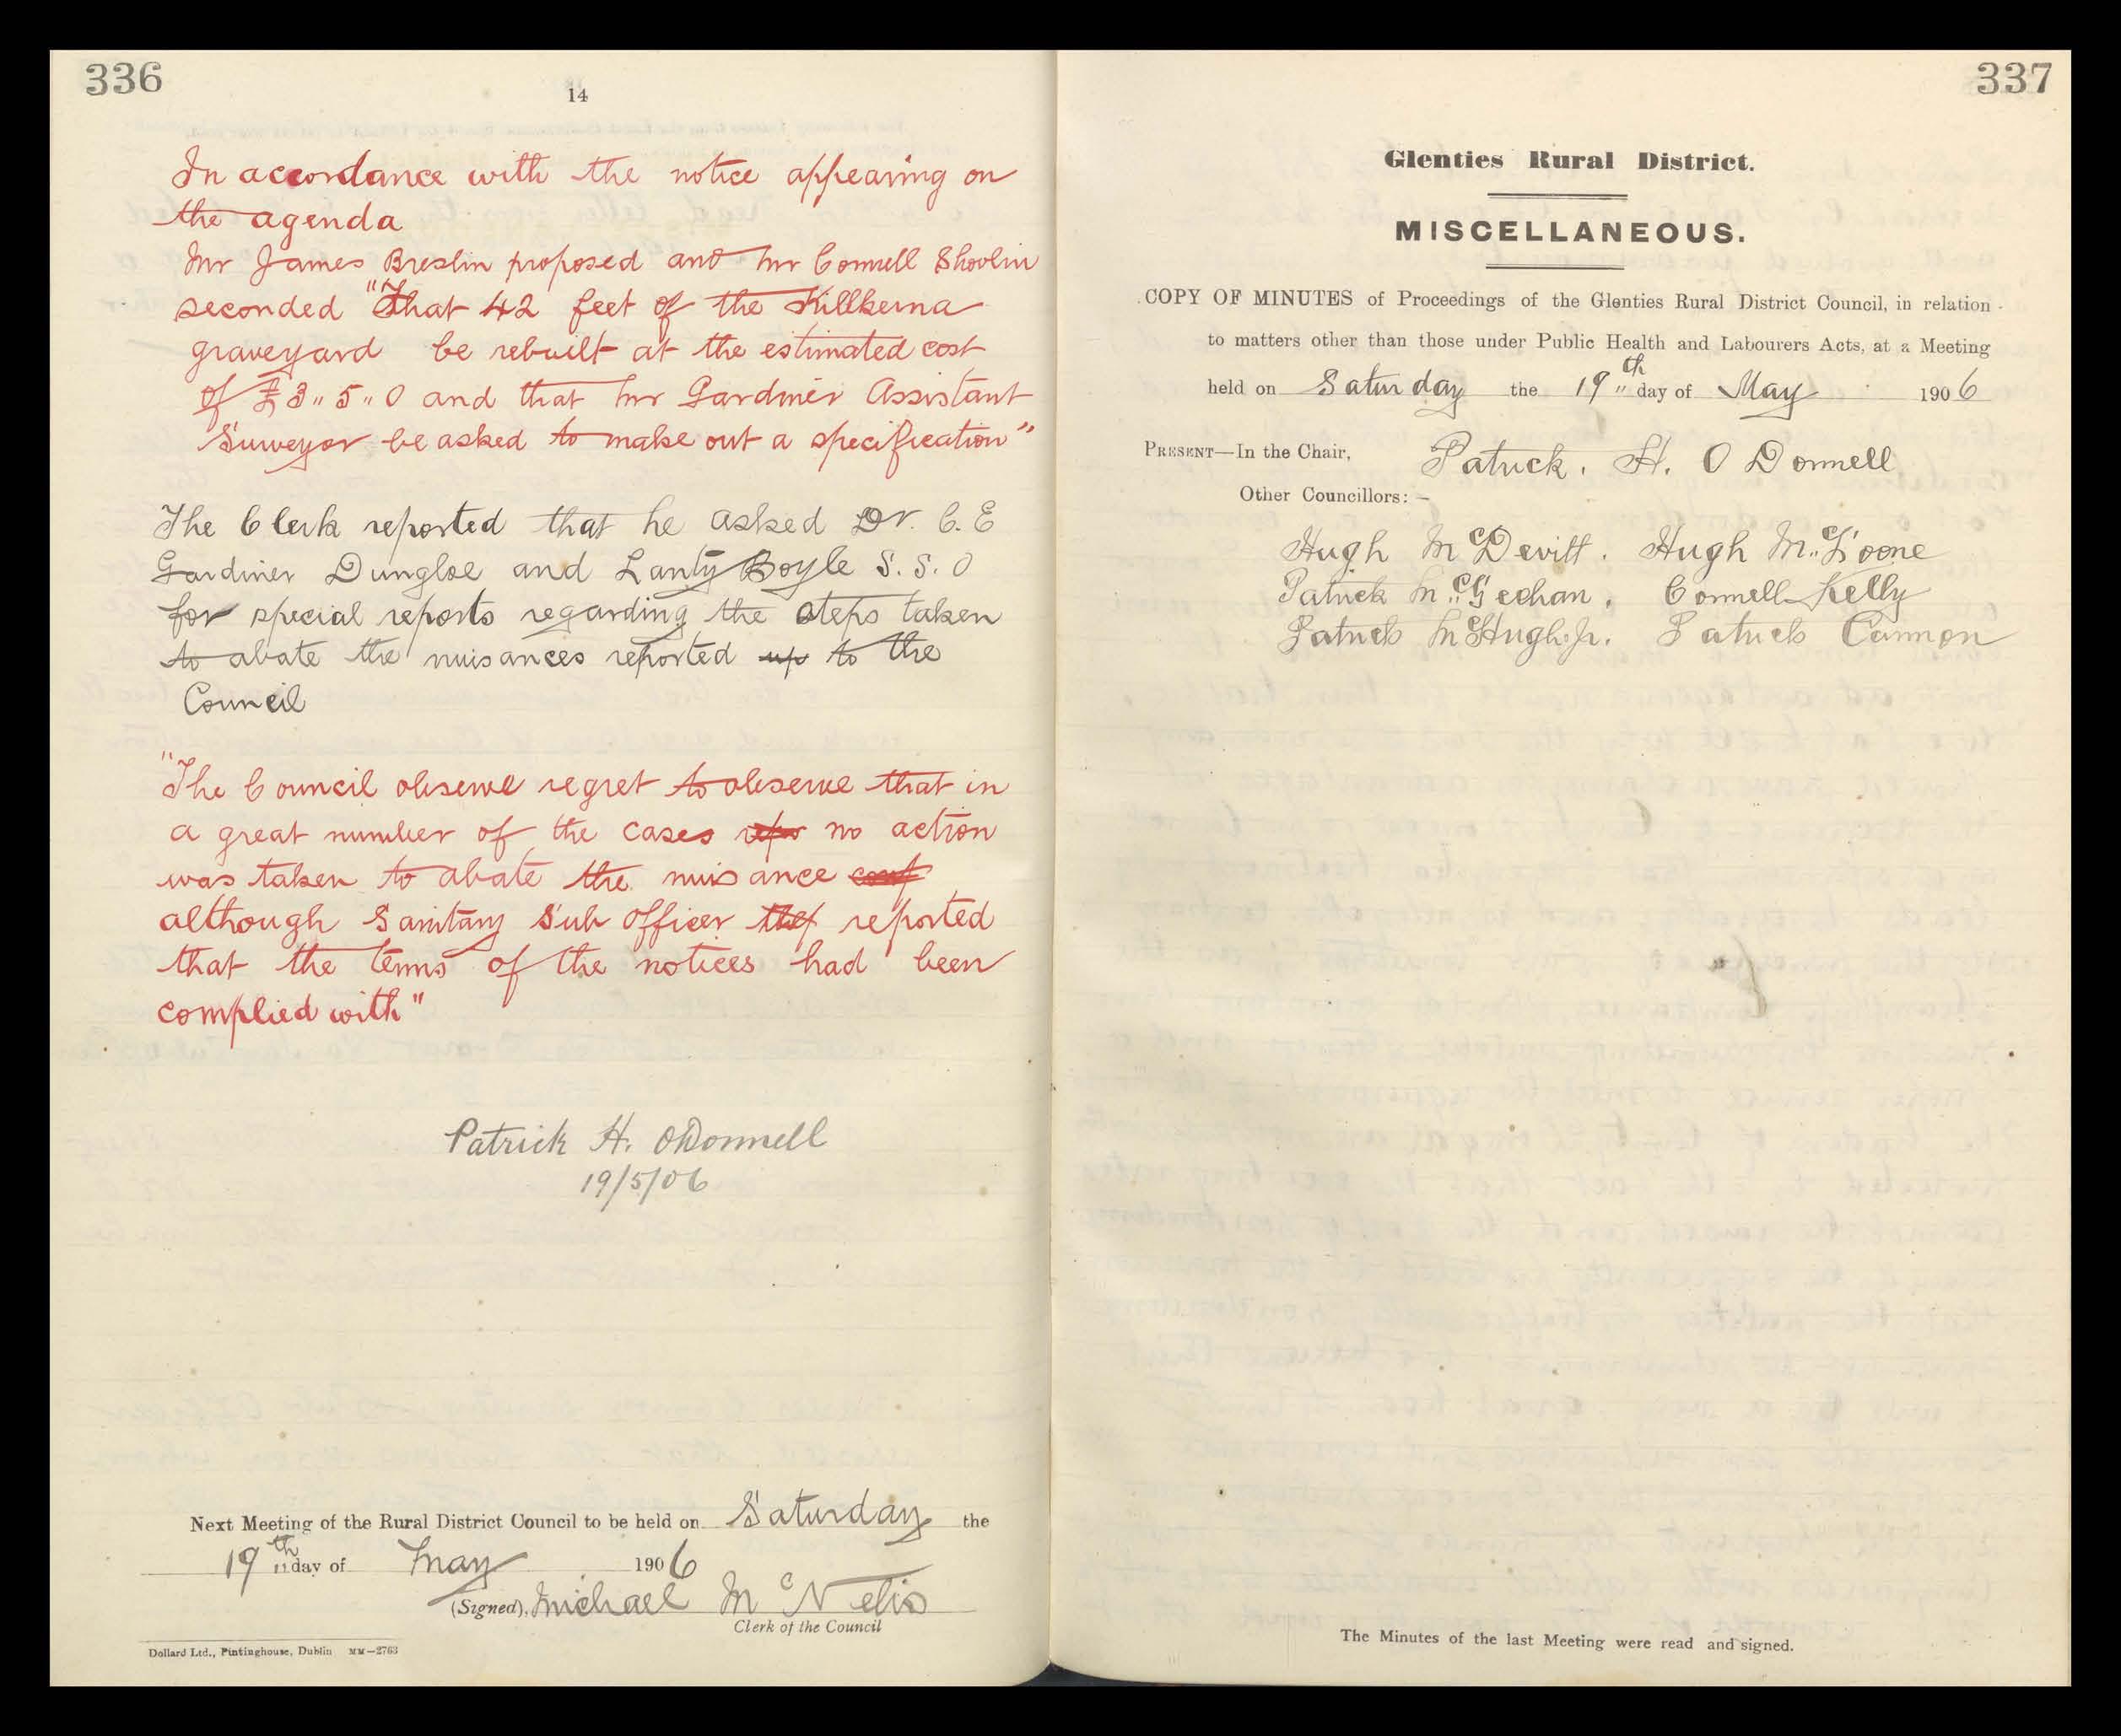 336
14
In accordance with the notice appearing on
the agenda
Mr James Breslin proposed and Mr Connell Shovlin
seconded "That 42 feet of the Killkerna
graveyard be rebuilt at the estimated cost
of £3"5"0 and that Mr Gardiner Assistant
Surveyor be asked to make out a specification"
The Clerk reported that he asked Dr. C. E
Gardiner Dungloe and Lanty Boyle S. S. O
for special reports regarding the steps taken
to abate the nuisances reported up to the
Council
"The Council observe regret to observe that in
a great number of the cases repo no action
was taken to abate the nuisance
although Sanitary Sub Officer reported
that the terms of the notices had been
complied with"
Patrick H. ODonnell
19/5/06
Next Meeting of the Rural District Council to be held on Saturday the
19th day of May 1906
(Signed), Michael McNelis
Clerk of the Council
Dollard Ltd., Pintinghouse, Dublin MM—2763
337
Glenties Rural District.
MISCELLANEOUS.
COPY OF MINUTES of Proceedings of the Glenties Rural District Council, in relation
to matters other than those under Public Health and Labourers Acts, at a Meeting
held on Saturday the 19th day of May 1906
PRESENT—In the Chair, Patrick. H. O Donnell
Other Councillors: –
Hugh McDevitt. Hugh McLoone
Patrick McGeehan. Connell Kelly
Patrick McHugh Jr. Patrick Cannon
The Minutes of the last Meeting were read and signed.